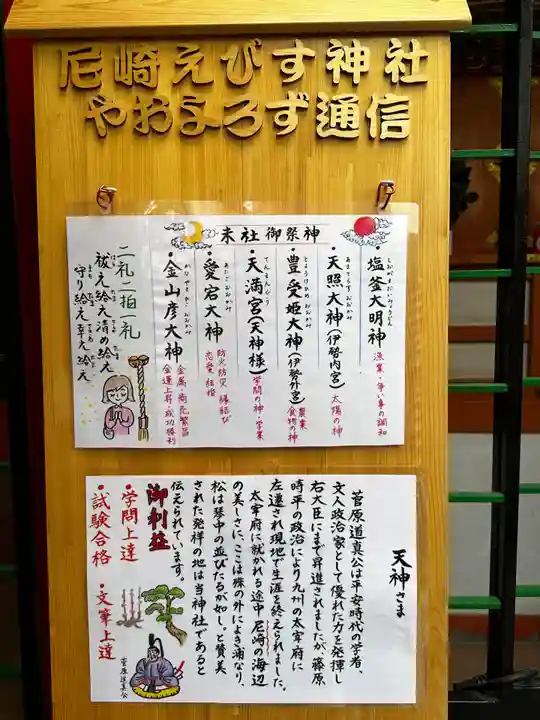 尼崎えびす神社
やおよろず通信
末社御祭神
・塩釜大明神
しおがまだいみょうじん
漁業・争い事の調和
・天照大神(伊勢内宮)
あまてらすおおかみ
太陽の神
・豊受姫大神(伊勢外宮)
とようけひめおおかみ
農業
食物の神
・天満宮(天神様)
てんまんぐう
学問の神・学業
・愛宕大神
あたごおおかみ
防火防災 縁結び
恋愛 結婚
・金山彦大神
かなやまひこおおかみ
金属 商売繁昌
金運上昇・成功勝利
二礼二拍一礼
祓え給え清め給え
守り給え幸え給え
天神さま
菅原道真公は平安時代の学者、
文人政治家として優れた力を発揮し
右大臣にまで昇進されましたが、藤原
時平の政治により九州の太宰府に
左遷され現地で生涯を終えられました。
太宰府に就かれる途中尼崎の海辺
の美しさに、ここは殊の外によき浦なり、
松は琴中の並びたるが如し、と賛美
された発祥の地は当神社であると
伝えられています。
御利益
・学問上達
・試験合格
・文筆上達
菅原道真公